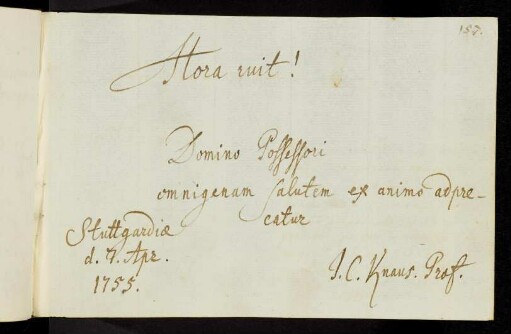 157.
Hora ruit!
Domino Possessori
omnigenam salutem ex animo adpre-
catur
Stuttgardiæ
d. 7. Apr.
1755.
J. C. Knaus. Prof.